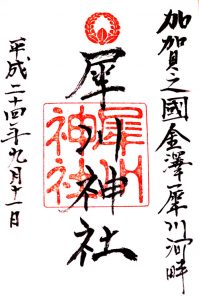 加賀之國金澤犀川河畔
犀川神社
犀川
神社
平成二十四年九月十一日